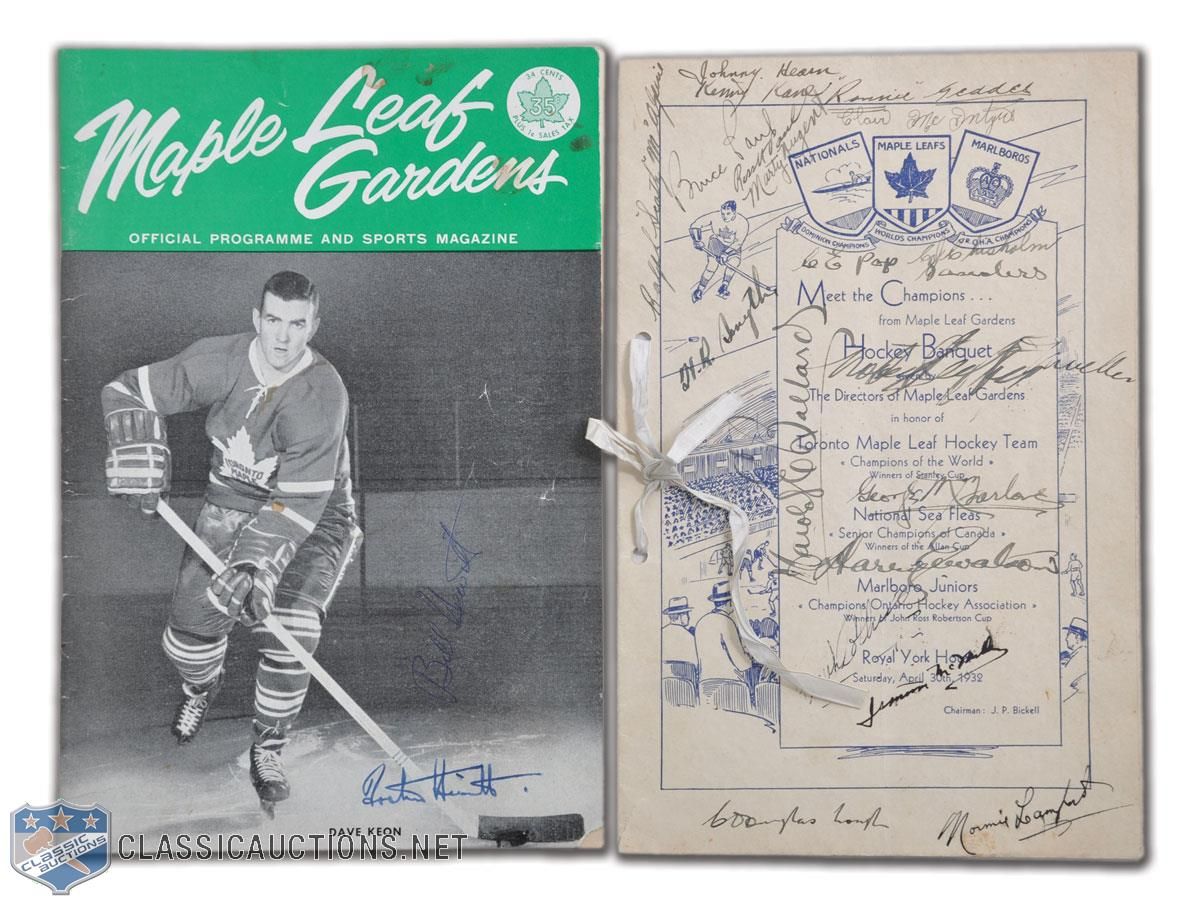 Maple Leaf
Gardens
34 CENTS
35¢
PLUS 1¢ SALES TAX
OFFICIAL PROGRAMME AND SPORTS MAGAZINE
TORONTO
MAPLE
Bill Hewitt
Foster Hewitt.
DAVE KEON
CLASSIC
AUCTIONS
CLASSICAUCTIONS.NET
Johnny Hearn
Kenny Kane "Ronnie" Geddes
Clair Mc Intyre
Bruce Paul
Marty Nugent
NATIONALS
MAPLE LEAFS
MARLBOROS
DOMINION CHAMPIONS
WORLDS CHAMPIONS
JR. O.H.A. CHAMPIONS
Chisholm
Saunders
Meet the Champions . . .
from Maple Leaf Gardens
Hockey Banquet
The Directors of Maple Leaf Gardens
in honor of
Toronto Maple Leaf Hockey Team
« Champions of the World »
Winners of Stanley Cup
National Sea Fleas
« Senior Champions of Canada »
Winners of the Allan Cup
Marlboro Juniors
« Champions Ontario Hockey Association »
Winners of John Ross Robertson Cup
Royal York Hotel
Saturday, April 30th, 1932
Chairman : J. P. Bickell
Harold Ballard
Harry Watson